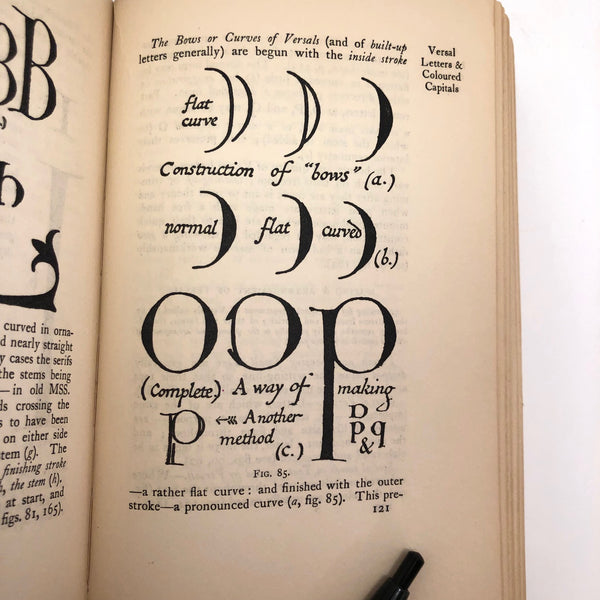 BB
h
curved in orna-
d nearly straight
y cases the serifs
the stems being
—in old MSS.
ds crossing the
s to have been
on either side
stem (g). The
finishing stroke
h, the stem (h).
at start, and
figs. 81, 165).
The Bows or Curves of Versals (and of built-up
letters generally) are begun with the inside stroke
Versal
Letters &
Coloured
Capitals
flat
curve
Construction of "bows" (a.)
normal flat curved
(b.)
O O p
(Complete) A way of making
p ← Another
method
(c.)
D
p q
&
FIG. 85.
—a rather flat curve: and finished with the outer
stroke—a pronounced curve (a, fig. 85). This pre-
121